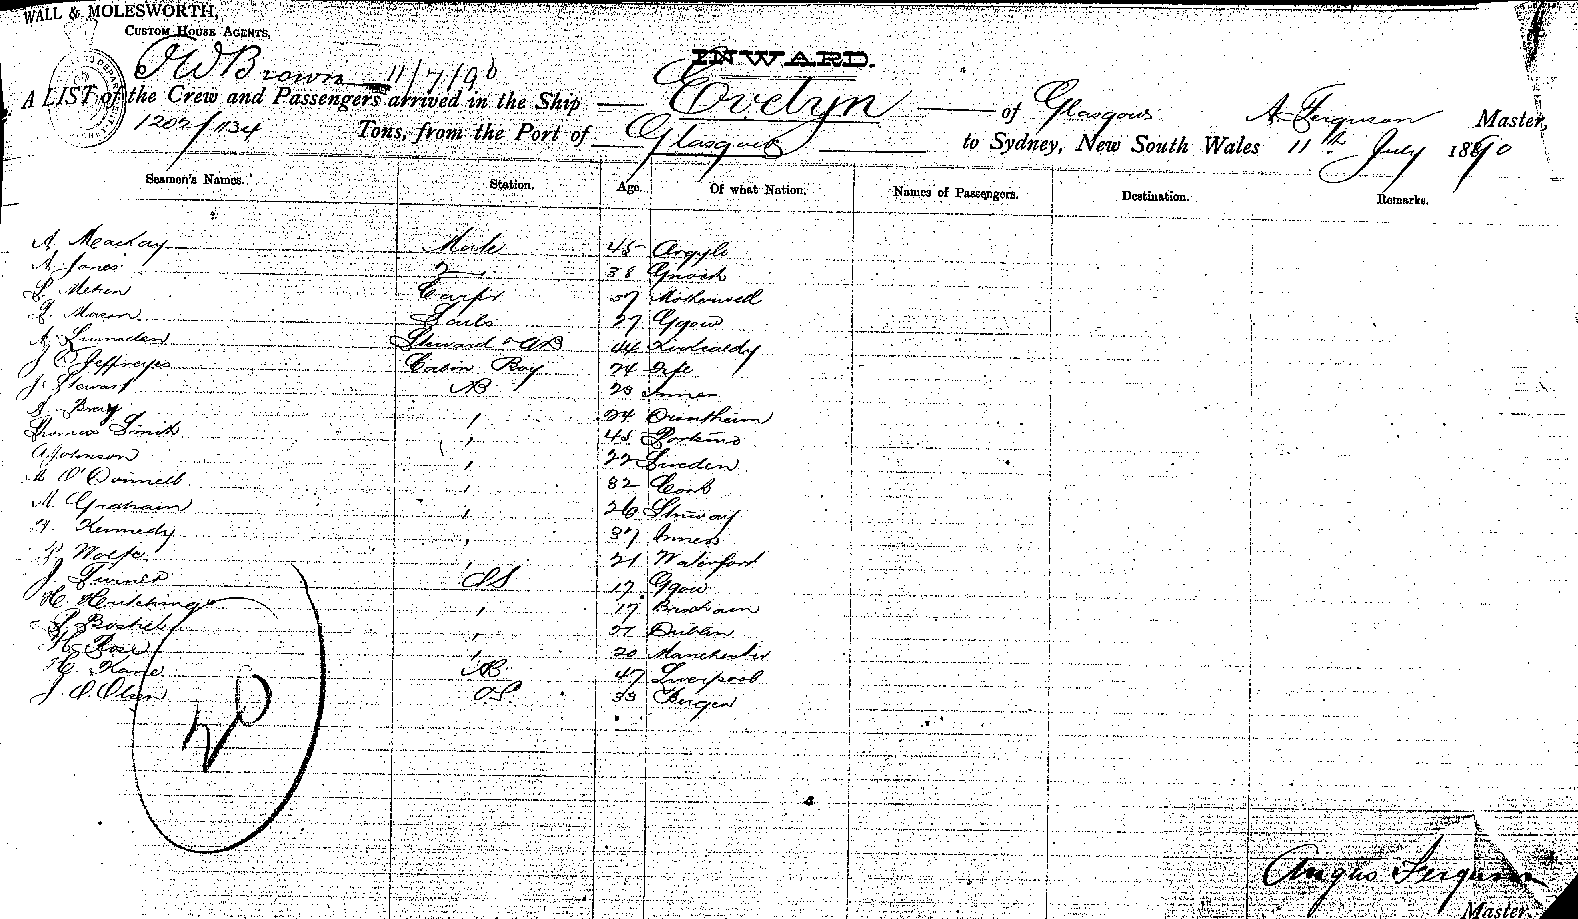 WALL & MOLESWORTH,
CUSTOM HOUSE AGENTS,
INWARD.
JW Brown 11/7/90
A LIST of the Crew and Passengers arrived in the Ship Evelyn of Glasgow A. Ferguson Master,
1202/1134 Tons, from the Port of Glasgow to Sydney, New South Wales 11th July 1890
Seamen's Names. Station. Age. Of what Nation. Names of Passengers. Destination. Remarks.
A. Mackay Mate 45 Argyle
A. Jones 2 38
Carpr 57 Motherwell
Mason Sails 27 Ggow
A. Lumsden Steward & AB 44
J C Jeffreyes Cabin Boy 24 Fife
J. Stewart AB 25
Bray " 24
Thomas Smith " 45
A Johnson " 22 Sweden
O'Donnell " 32 Cork
M. Graham " 26
Kennedy " 37 Inness
Wolfe " 21 Waterford
J. Turner OS 17 Ggow
H. Hutchings " 17 Brixham
" 21 Dublin
H. Rose " 20 Manchester
H. Kane AB 47 Liverpool
J O. Olsen OS 33 Bergen
Angus Ferguson
Master.